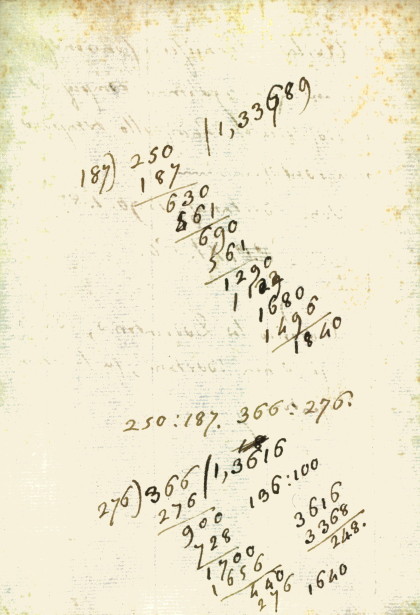 187) 250 | 1,33689
187
630
561
690
561
1290
1129
1680
1496
1840
250:187. 366:276.
276) 366 | 1,3616
276 136:100
900
728 3616
1700 3368
1656 248.
440
276 1640